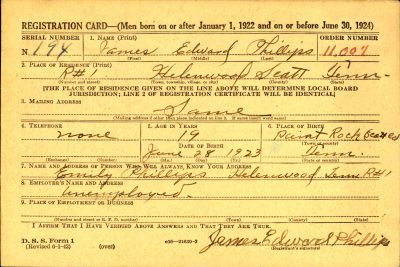 REGISTRATION CARD—(Men born on or after January 1, 1922 and on or before June 30, 1924)
SERIAL NUMBER 1. NAME (Print) ORDER NUMBER
N 194 James Edward Phillips 11,007
(First) (Middle) (Last)
2. PLACE OF RESIDENCE (Print)
R#1 Helenwood Scott Tenn.
(Number and street) (Town, township, village, or city) (County) (State)
[THE PLACE OF RESIDENCE GIVEN ON THE LINE ABOVE WILL DETERMINE LOCAL BOARD
JURISDICTION; LINE 2 OF REGISTRATION CERTIFICATE WILL BE IDENTICAL]
3. MAILING ADDRESS
Same
[Mailing address if other than place indicated on line 2. If same insert word same]
4. TELEPHONE 5. AGE IN YEARS 6. PLACE OF BIRTH
none 19 Rock Scott Co
DATE OF BIRTH (Town or county)
June 28 1923 Tenn.
(Exchange) (Number) (Mo.) (Day) (Yr.) (State or country)
7. NAME AND ADDRESS OF PERSON WHO WILL ALWAYS KNOW YOUR ADDRESS
Emily Phillips Helenwood Tenn R#1
8. EMPLOYER'S NAME AND ADDRESS
Unemployed.
9. PLACE OF EMPLOYMENT OR BUSINESS
(Number and street or R. F. D. number) (Town) (County) (State)
I AFFIRM THAT I HAVE VERIFIED ABOVE ANSWERS AND THAT THEY ARE TRUE.
D. S. S. Form 1 James Edward Phillips
(Revised 6-1-42) (over) (Registrant's signature)